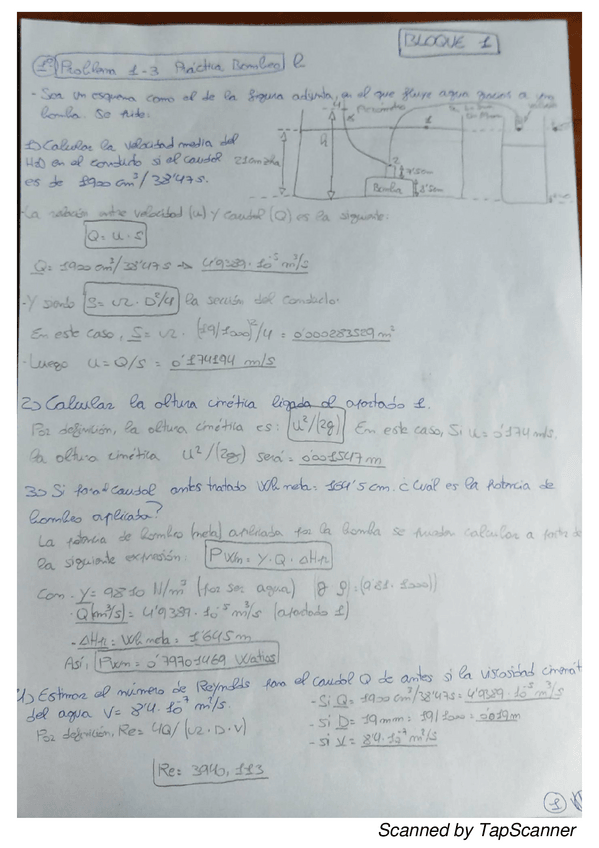 BLOQUE 1
1º Problem 1-3 Práctica Bombeo
- Sea un esquema como el de la figura adjunta, en el que fluye agua gracias a una
bomba. Se pide:
1) Calcular la velocidad media del
H2O en el conducto si el caudal
es de 1900 cm³/38'47s.
Bomba
- La relación entre velocidad (u) y caudal (Q) es la siguiente:
Q = u · S
Q = 1900 cm³/38'47 s → 4'9389·10⁻⁵ m³/s
- Y siendo S = π · D²/4 la sección del conducto.
En este caso, S = π · (19/1000)²/4 = 0'000283529 m²
- Luego u = Q/S = 0'174194 m/s
2) Calcular la altura cinética ligada al apartado 1.
Por definición, la altura cinética es: u²/(2g) En este caso, Si u = 0'174 m/s.
la altura cinética u²/(2g) será = 0'001547 m
3) Si para el caudal antes tratado Wh neta = 164'5 cm. ¿Cuál es la potencia de
bombeo aplicada?
La potencia de bombeo (neta) aplicada por la bomba se puede calcular a partir de
la siguiente expresión: PWn = γ · Q · ΔHn
Con - γ = 9810 N/m³ (por ser agua)
- Q(m³/s) = 4'9389·10⁻⁵ m³/s (apartado 1)
- ΔHn = Wh neta = 1'645m
Así, PWn = 0'79701469 Watios
4) Estimar el número de Reynolds para el caudal Q de antes si la viscosidad cinemát
del agua V = 8'4·10⁻⁷ m²/s.
Por definición, Re = 4Q/(π · D · V)
- Si Q = 1900 cm³/38'47s = 4'9389·10⁻⁵ m³/s
- Si D = 19mm = 19/1000 = 0'019m
- si V = 8'4·10⁻⁷ m²/s
Re = 3940,113
1
Scanned by TapScanner